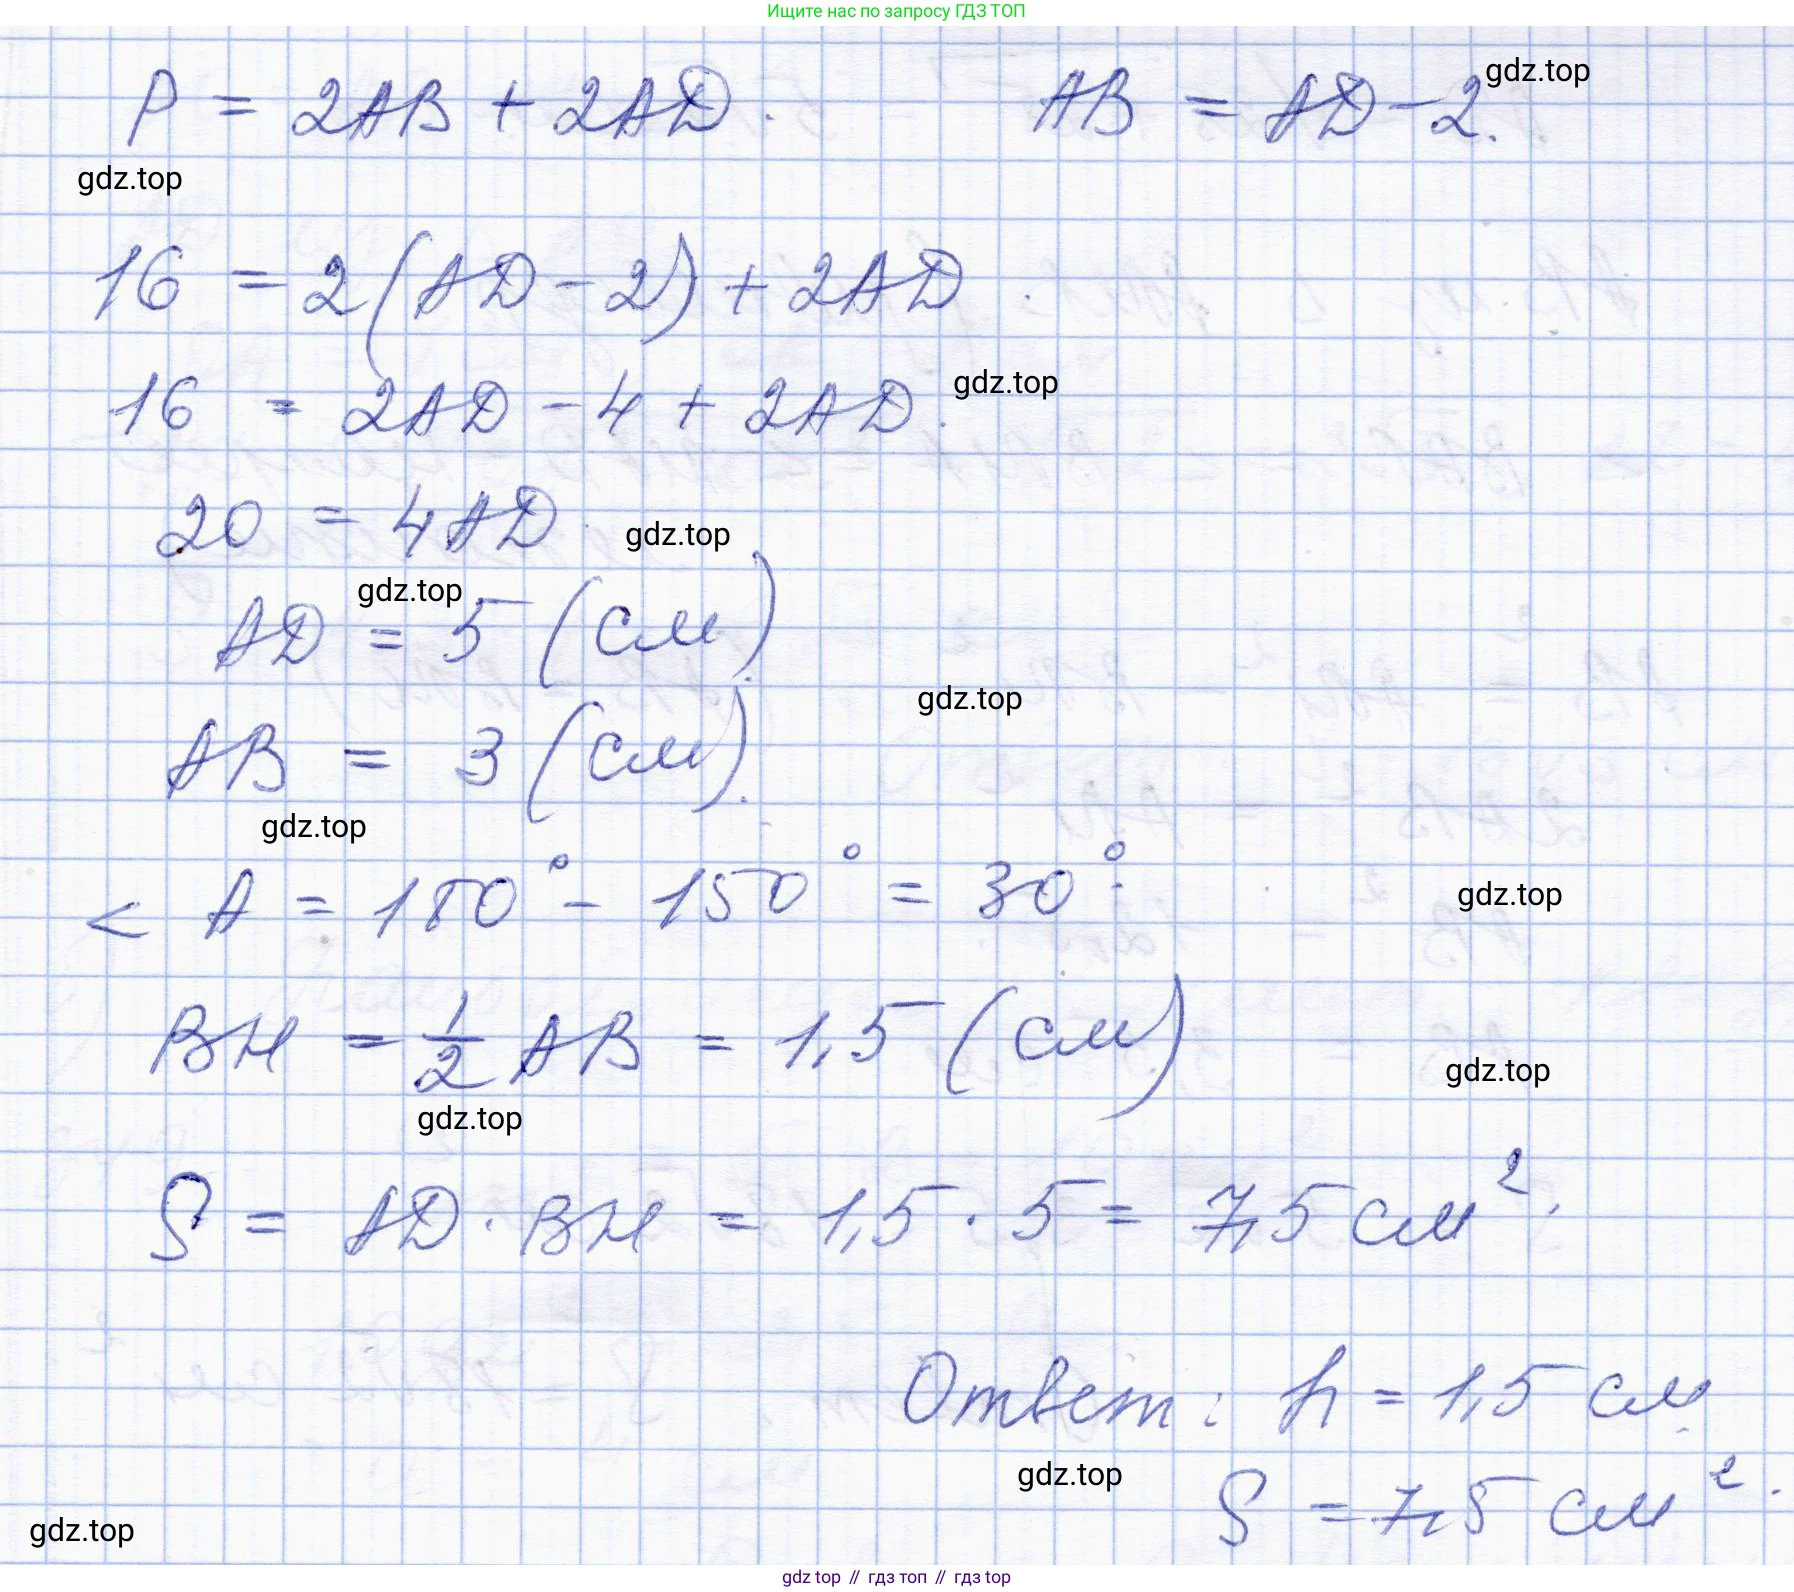 Ищите нас по запросу ГДЗ ТОП
P = 2AB + 2AD. AB = AD - 2.
gdz.top
gdz.top
16 = 2(AD - 2) + 2AD.
16 = 2AD - 4 + 2AD.
gdz.top
20 = 4AD.
gdz.top
gdz.top
AD = 5 (см).
gdz.top
AB = 3 (см).
gdz.top
< A = 180° - 150° = 30°.
gdz.top
BH = 1/2 AB = 1,5 (см)
gdz.top
gdz.top
S = AD · BH = 1,5 · 5 = 7,5 см².
Ответ: h = 1,5 см
gdz.top
S = 7,5 см².
gdz.top
gdz top // гдз топ // гдз top